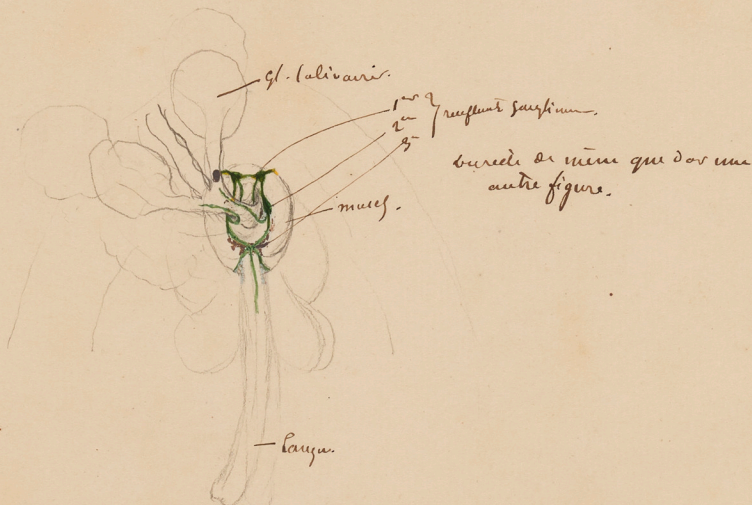 gl. salivaire.
1er
2me renflent ganglionn.
3
bucede de même que dans une
autre figure.
muscl.
langue.